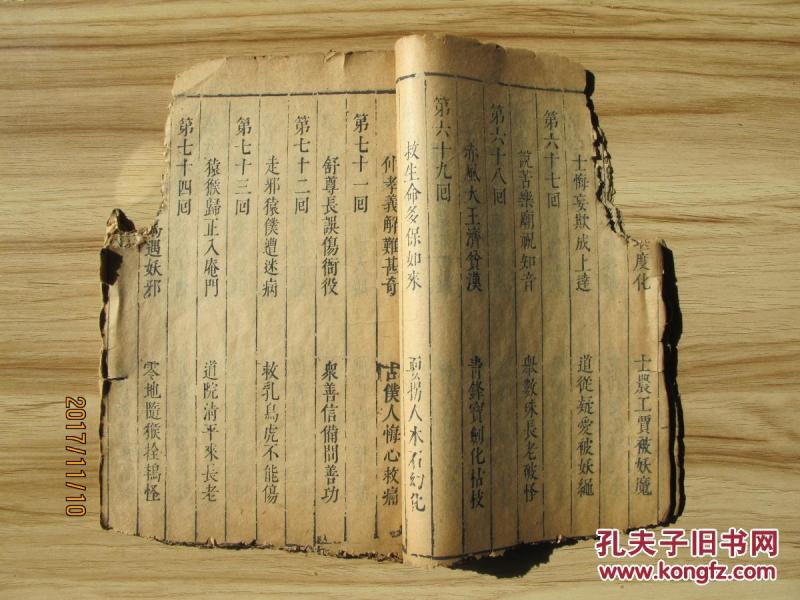 度化　士農工賈被妖魔
士悔妄欺成上達　道從疑愛被妖繩
第六十七回
說苦樂廟祝知音　衆數珠長老破怪
第六十八回
赤風大王濟貧漢　青鋒寶劍化枯枝
第六十九回
救生命多保如來　拐人木石幻化
仲孝義解難甚奇　古僕人悔心救痛
第七十一回
舒尊長誤傷衙役　衆善信備問善功
第七十二回
走邪猿僕遭迷病　救乳鳥虎不能傷
第七十三回
猿猴歸正入庵門　道院清平來長老
第七十四回
遇妖邪　零地隨猴拴鵲怪
2017/11/10
孔夫子旧书网
www.kongfz.com